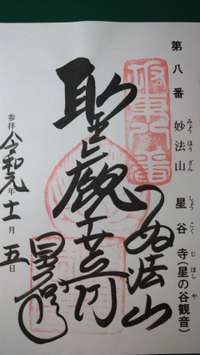 第八番 妙法山 星谷寺(星の谷観音)
みょう ほう ざん しょう こく じ ほし や
坂東八番
妙法山
聖観世音
星谷寺
参拝 令和元年十一月五日